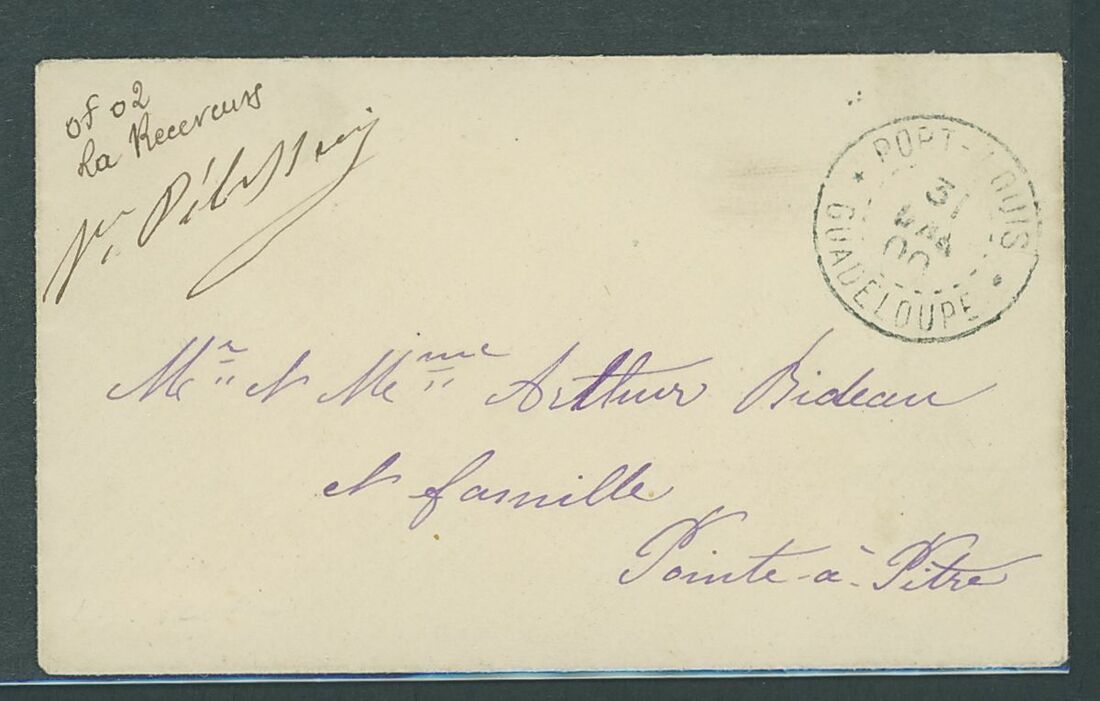 0f 02
La Receveuse
Mr et Mme Arthur Bideau
et famille
Pointe-à-Pitre
PORT-LOUIS
31
00
GUADELOUPE